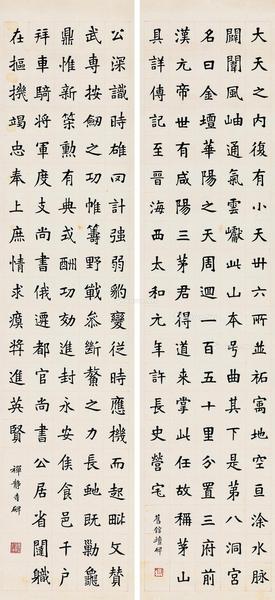 大天之内復有小天卅六所並祐寓堂亘塗水脉
闢闠風岫通氣雲巘此山本号曲其下是第八洞宮
名曰金壇華陽之天周迴一百五十里分置三府前
漢元帝世有咸陽三茅君得道来掌此任故稱茅山
具詳傳記至晉海西太和元年許長史營宅
舊館壇碑
公深識時雄回計強弱豹變従時應機而起文贊
武專按劒之功帷籌野戰叅斷鼇之力長虵既勦龜
鼎惟新策勲有典或酬功効進封永安侯食邑千戶
拜車騎將軍度支尚書俄遷都官尚書公居省闥職
在摳機竭忠奉上庶情求瘼獎進英賢
禪靜寺碑